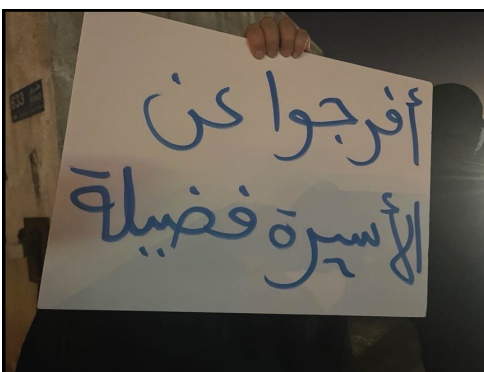 أفرجوا عن
الأسيرة فضيلة
633